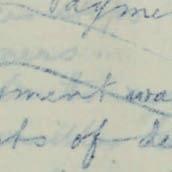 Payme
yment wa
ts of de